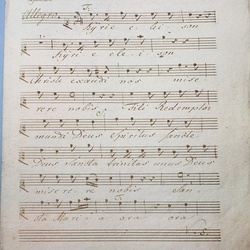 Allegro
Kyrie e lei son
Kyri e e lei son
Christe exaudi nos mise
rere nobis Fili Redemptor
mundi Deus Spiritus sancte
Deus sancta trinitas unus Deus
mise re re nobis San
cta Mari a ora ora